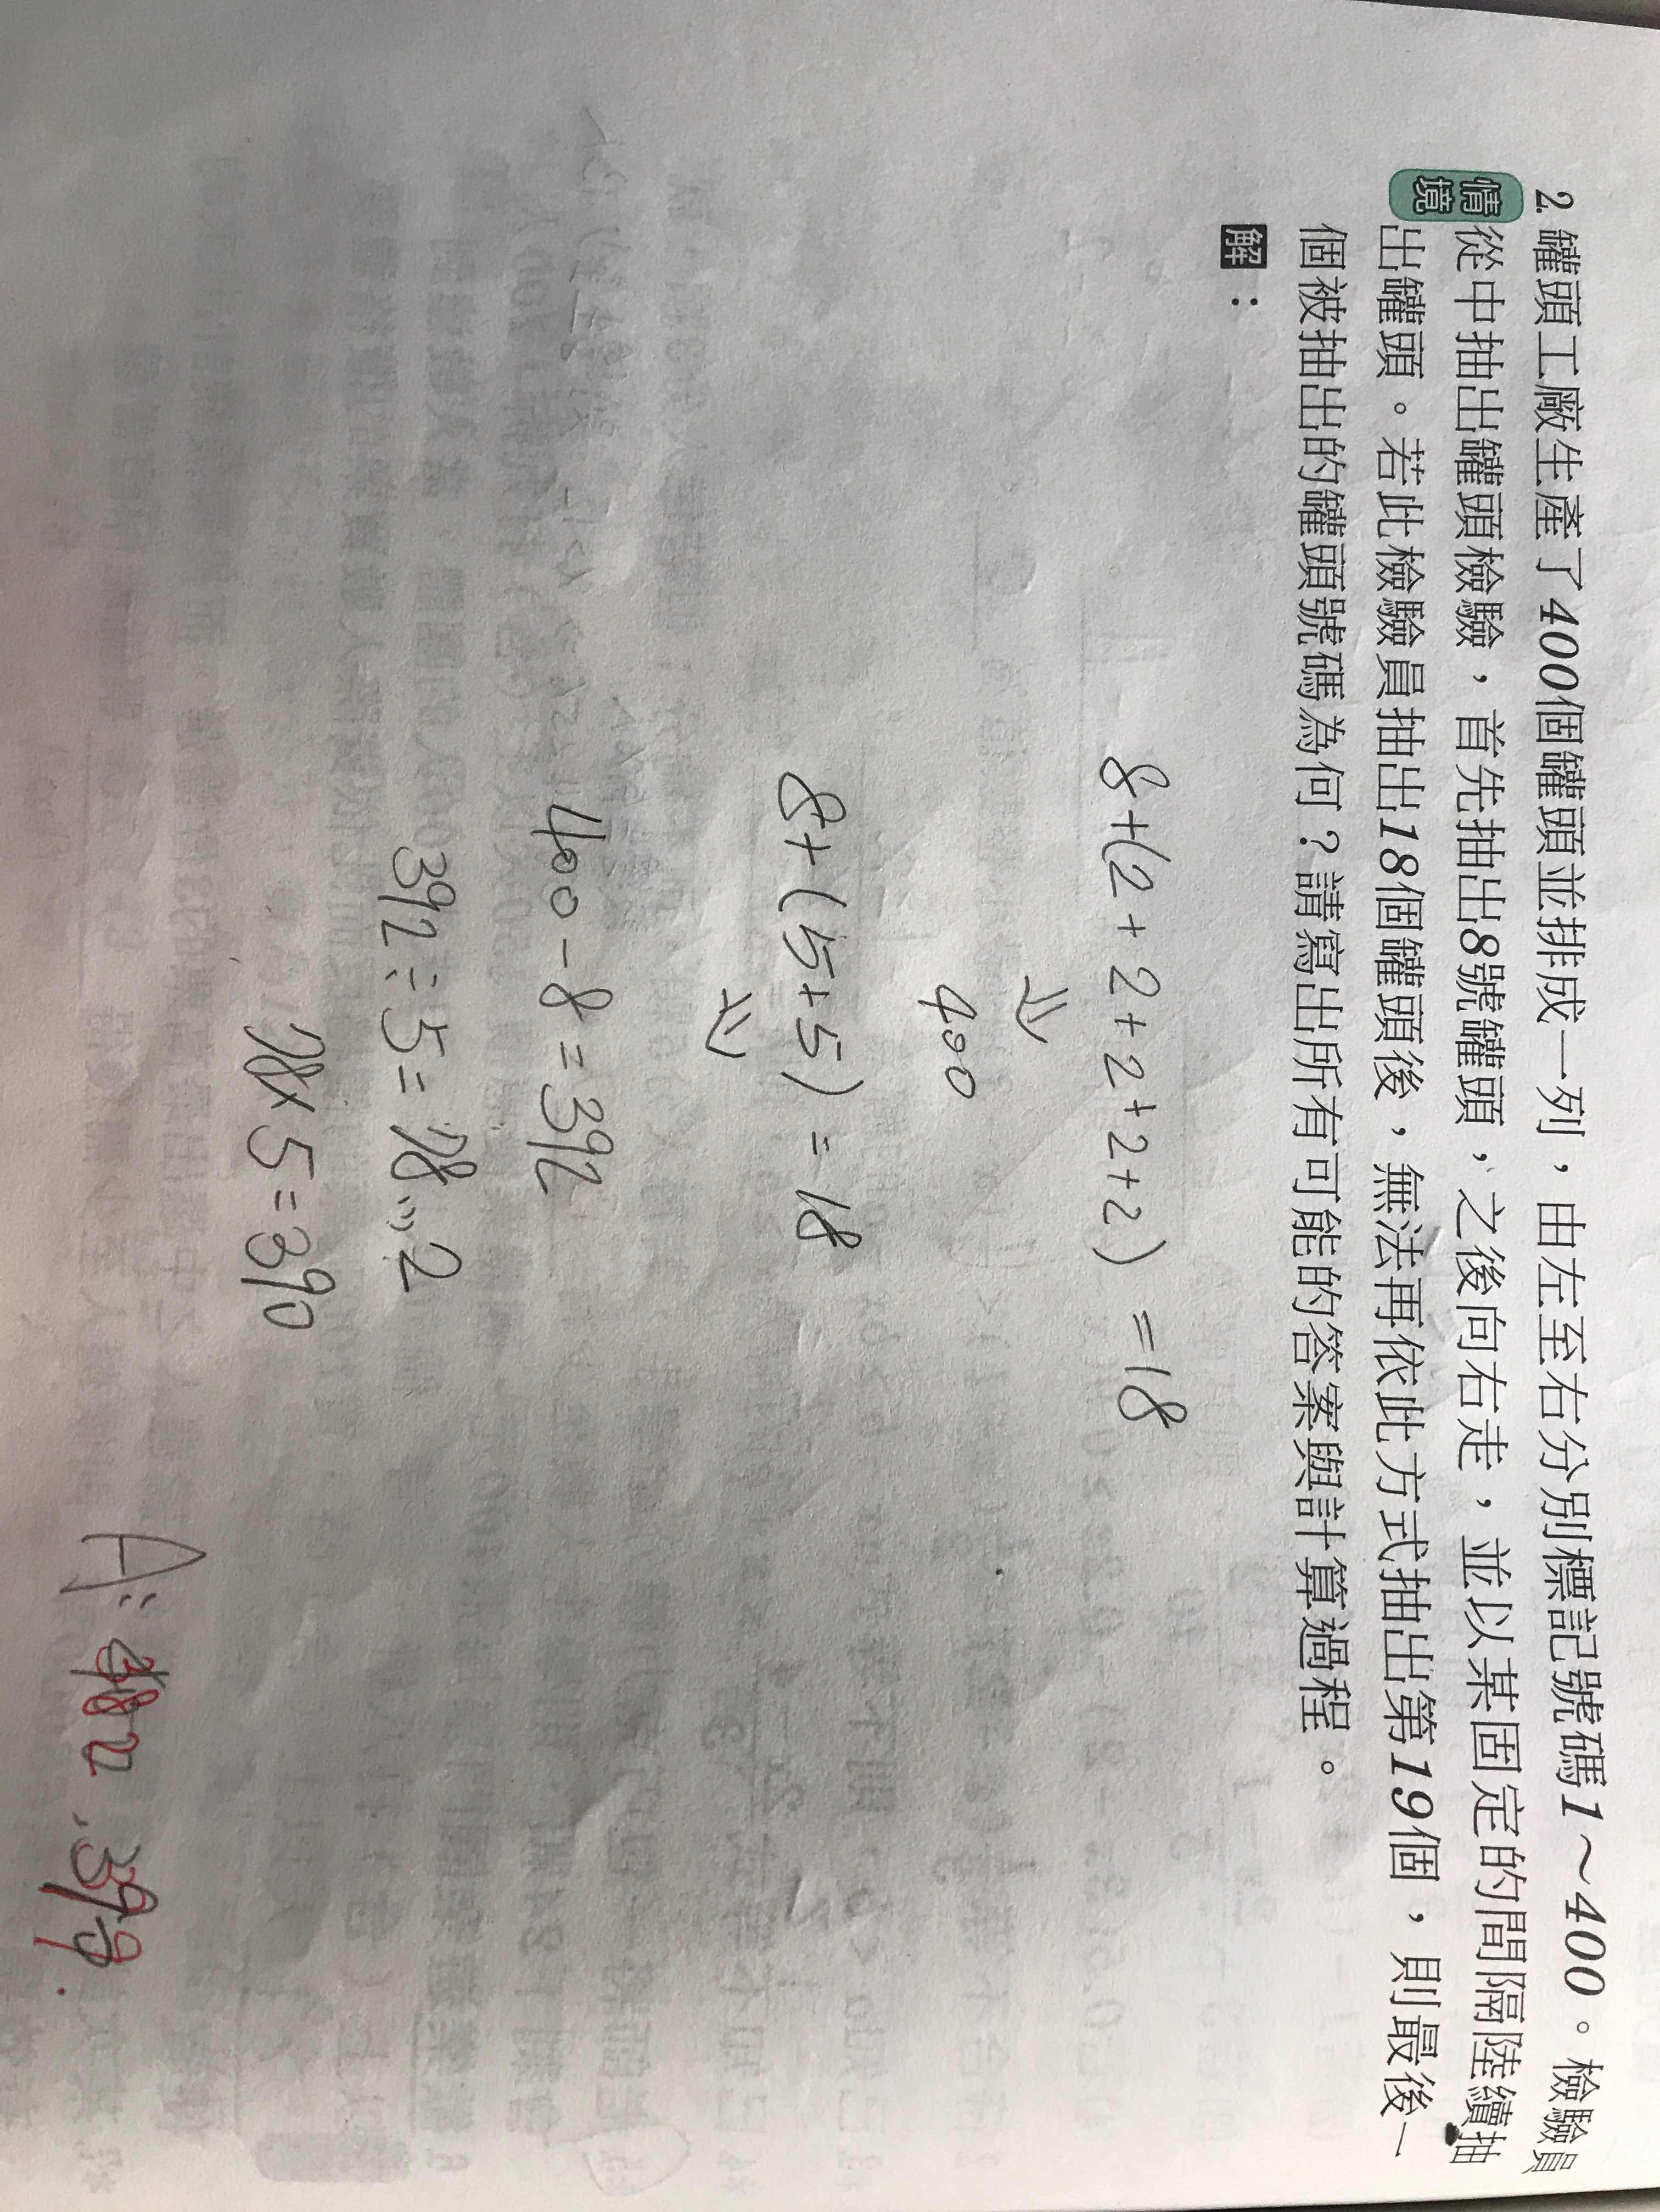 2. 罐頭工廠生產了400個罐頭並排成一列，由左至右分別標記號碼1～400。檢驗員
情境 從中抽出罐頭檢驗，首先抽出8號罐頭，之後向右走，並以某固定的間隔陸續抽
出罐頭。若此檢驗員抽出18個罐頭後，無法再依此方式抽出第19個，則最後一
個被抽出的罐頭號碼為何？請寫出所有可能的答案與計算過程。
解：
8+(2+2+2+2+2)=18
⇓
400
8+(5+5)=18
⇓
400-8=392
392÷5=78...2
78×5=390
A: 382、399.